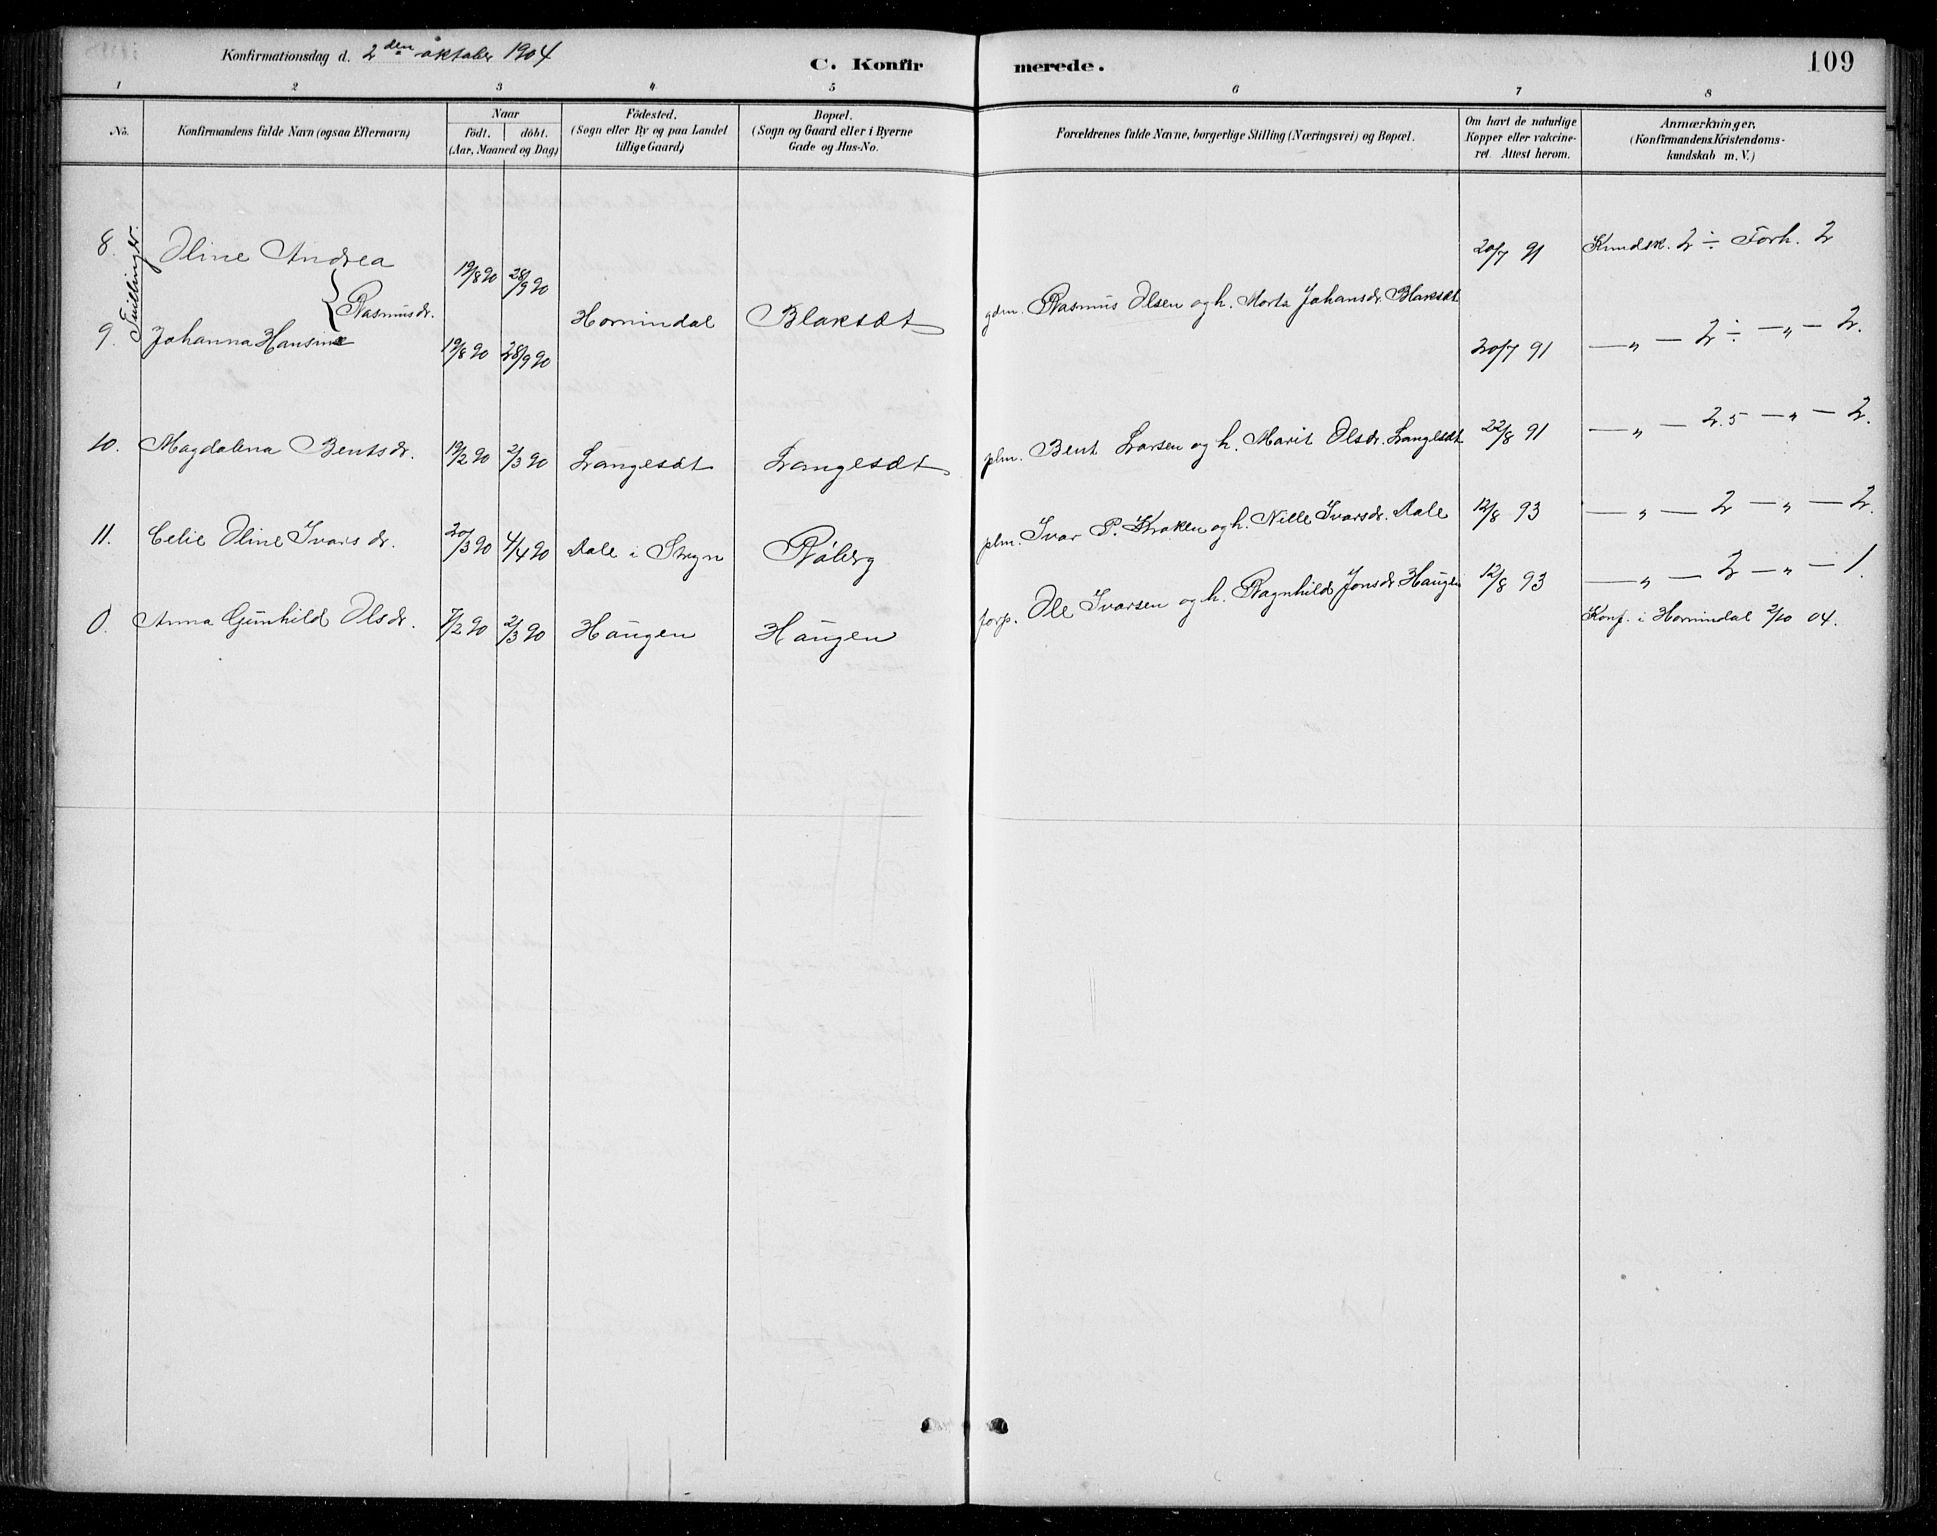 Konfirmationsdag d. 2den oktober 1904
C. Konfirmerede.
109
1 2 3 4 5 6 7 8
No.
Konfirmandens fulde Navn (ogsaa Efternavn)
Naar
født. døbt.
(Aar, Maaned og Dag)
Fødested.
(Sogn eller By og paa Landet
tillige Gaard)
Bopæl.
(Sogn og Gaard eller i Byerne
Gade og Hus-No.
Forældrenes fulde Navne, borgerlige Stilling (Næringsvei) og Bopæl.
Om havt de naturlige
Kopper eller vakcine-
ret. Attest herom.
Anmærkninger.
(Konfirmandens Kristendoms-
kundskab m. V.)
Tvillinger.
8. Oline Andrea 19/8 90 28/9 90 20/7 91 Kundsk. 2 ÷ Forh. 2
} Rasmusdr. Hornindal Blaksæt gdm. Rasmus Olsen og h. Marta Johansdr. Blaksæt
9. Johanna Hansine 19/8 90 28/9 90 20/7 91 — „ — 2 ÷ — „ — 2.
10. Magdalena Bentsdr. 19/2 90 2/3 90 Langesæt Langesæt plm. Bent Larsen og h. Marit Olsdr. Langesæt 22/8 91 — „ — 2.5 — „ — 2.
11. Celie Oline Ivarsdr. 20/3 90 4/4 90 Aale i Stryn Røberg plm. Ivar P. Kraken og h. Nille Ivarsdr. Aale 12/8 93 — „ — 2 — „ — 2.
0. Anna Gunhild Olsdr. 7/2 90 2/3 90 Haugen Haugen forp. Ole Ivarsen og h. Ragnhild Jonsdr. Haugen 12/8 93 — „ — 2 — „ — 1.
Konf. i Hornindal 2/10 04.